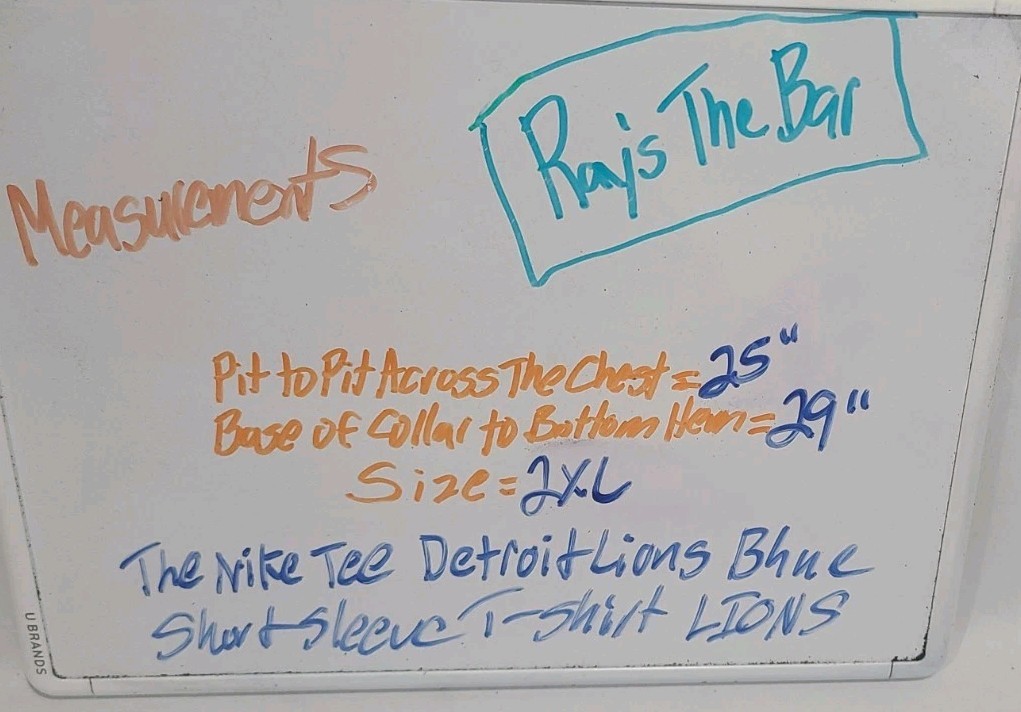 Ray's The Bar
Measurements
Pit to Pit Across The Chest = 25"
Base of Collar to Bottom Hem = 29"
Size = 2XL
The Nike Tee Detroit Lions Blue
Short Sleeve T-Shirt LIONS
U BRANDS